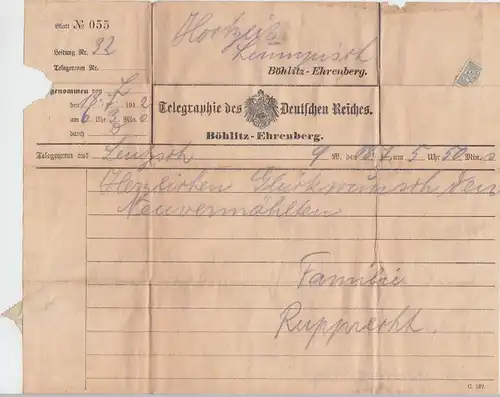 Blatt № 055
Leitung Nr. 32
Telegramm Nr.
genommen von L
den 18/7 1912
am 6 Uhr 30 Min
durch
Hochzeit
Böhlitz-Ehrenberg.
Telegraphie des Deutschen Reiches.
Böhlitz-Ehrenberg.
Telegramm aus Leutzsch 9 W. den 18/7 um 5 Uhr 50 Min.
Herzlichen Glückwunsch den
Neuvermählten
Familie
Rupprecht.
C. 187.